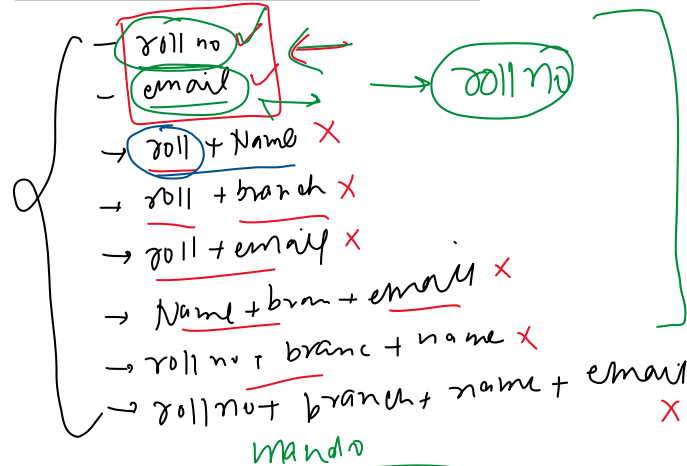 - roll no ✓
- email ✓
roll no
→ roll + Name X
→ roll + branch X
→ roll + email X
→ Name + bran + email X
→ roll no + branc + name X
→ roll no + branch + name + email X
mando